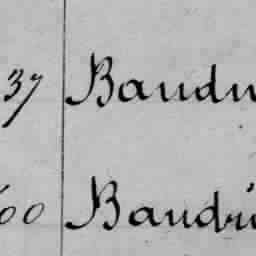 37 Baudu
60 Baudri